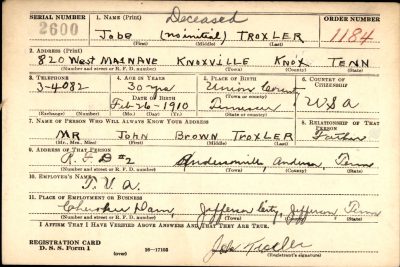 SERIAL NUMBER
1. NAME (Print)
Deceased
ORDER NUMBER
2600
Jobe (no initial) TROXLER
1184
(First) (Middle) (Last)
2. ADDRESS (Print)
820 West MAIN AVE KNOXVILLE KNOX TENN
(Number and street or R. F. D. number) (Town) (County) (State)
3. TELEPHONE
4. AGE IN YEARS
5. PLACE OF BIRTH
6. COUNTRY OF CITIZENSHIP
3-4082
30 yrs
Union County
DATE OF BIRTH
(Town or county)
Feb-26-1910
Tennessee
USA
(Exchange) (Number)
(Mo.) (Day) (Yr.)
(State or country)
7. NAME OF PERSON WHO WILL ALWAYS KNOW YOUR ADDRESS
8. RELATIONSHIP OF THAT PERSON
MR John Brown TROXLER Father
(Mr., Mrs., Miss) (First) (Middle) (Last)
9. ADDRESS OF THAT PERSON
R.F.D #2 Andersonville, Anderson, Tenn
(Number and street or R. F. D. number) (Town) (County) (State)
10. EMPLOYER'S NAME
T.V.A.
11. PLACE OF EMPLOYMENT OR BUSINESS
Cherokee Dam, Jefferson City, Jefferson Tenn
(Number and street or R. F. D. number) (Town) (County) (State)
I AFFIRM THAT I HAVE VERIFIED ABOVE ANSWERS AND THAT THEY ARE TRUE.
REGISTRATION CARD
D. S. S. Form 1
(over)
16-17105
Jobe Troxler
(Registrant's signature)